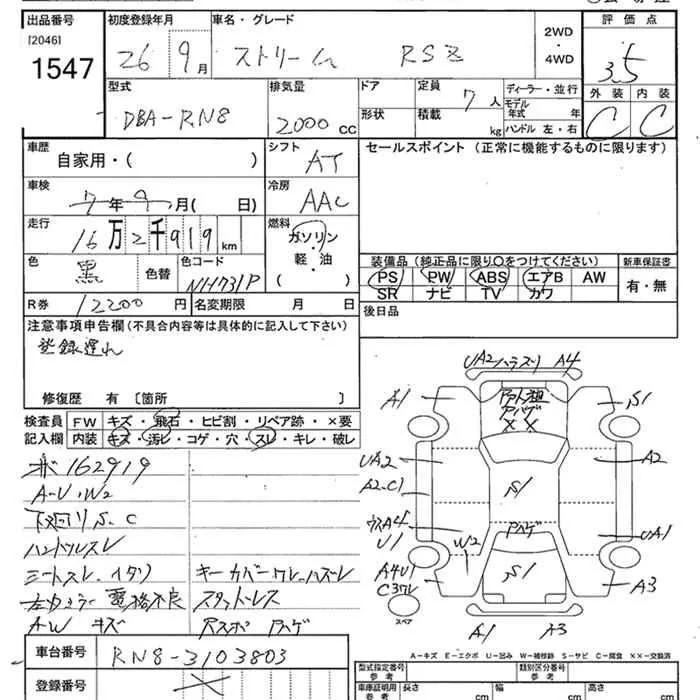 出品番号 初度登録年月 車名・グレード 2WD・4WD 評価点
[2046] 1547 26 9月 ストリーム RSZ 3.5
外装 内装
C C
型式 排気量 ドア 定員 7人 ディーラー・並行
DBA-RN8 2000cc 形状 積載 kg モデル年式 年 ハンドル 左・右
車歴 シフト セールスポイント(正常に機能するものに限ります)
自家用・( ) AT
車検 冷房
7年9月( 日) AAC
走行 燃料
16万2千919km ガソリン・軽・油( )
装備品(純正品に限り○をつけてください) 新車保証書
色 黒 色替 色コード NH731P
PS PW ABS エアB AW 有・無
SR ナビ TV カワ
R券 12200円 名変期限 月 日 後日品
注意事項申告欄(不具合内容等は具体的に記入して下さい)
登録遅れ
修復歴 有 〔箇所 〕
検査員記入欄 FW キズ・飛石・ヒビ割・リペア跡・×要
内装 キズ・汚レ・コゲ・穴・スレ・キレ・破レ
162919
A-U・W2
下廻り S・C
ハンドルスレ
シートスレ・イタリ キーカバーワレ・ハズレ
電格不良 スタットレス
A-W キズ
車台番号 RN8-3103803
登録番号
UA2 A4
A1 S1
UA2 A2
A2-C1 S1
A4
U1 W2 UA1
A4U1 S1 A3
スペア
A1 A3
A-キズ E-エクボ U-凹み W-補修跡 S-サビ C-腐食 XX-交換済
型式指定番号 参考 類別区分番号 参考
車庫証明用 参考 長さ cm 幅 cm 高さ cm